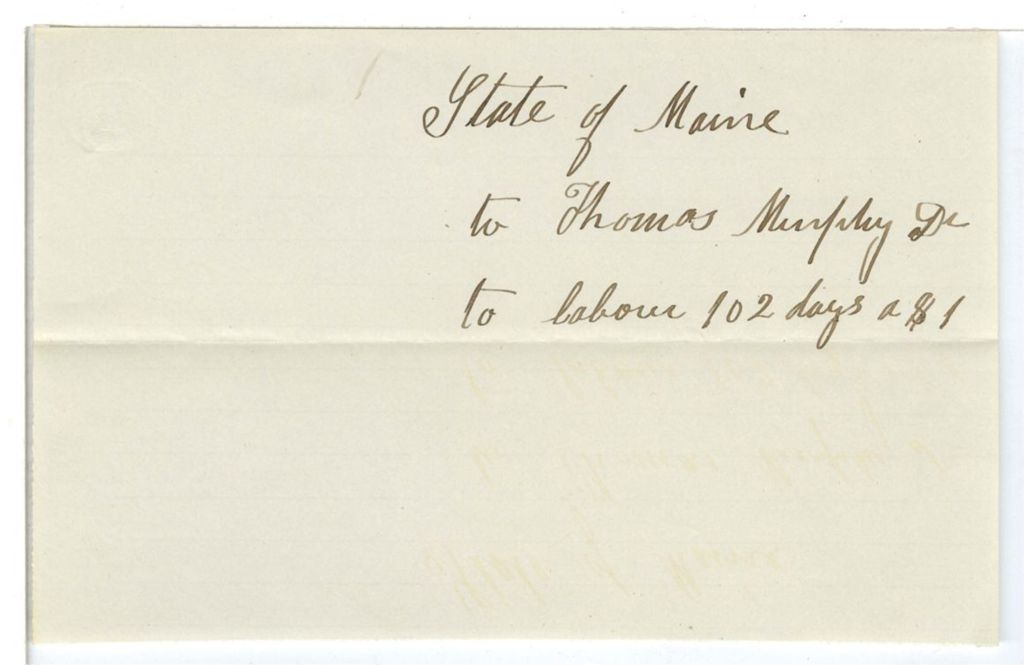 State of Maine
to Thomas Murphy Dr
to labour 102 days a $1